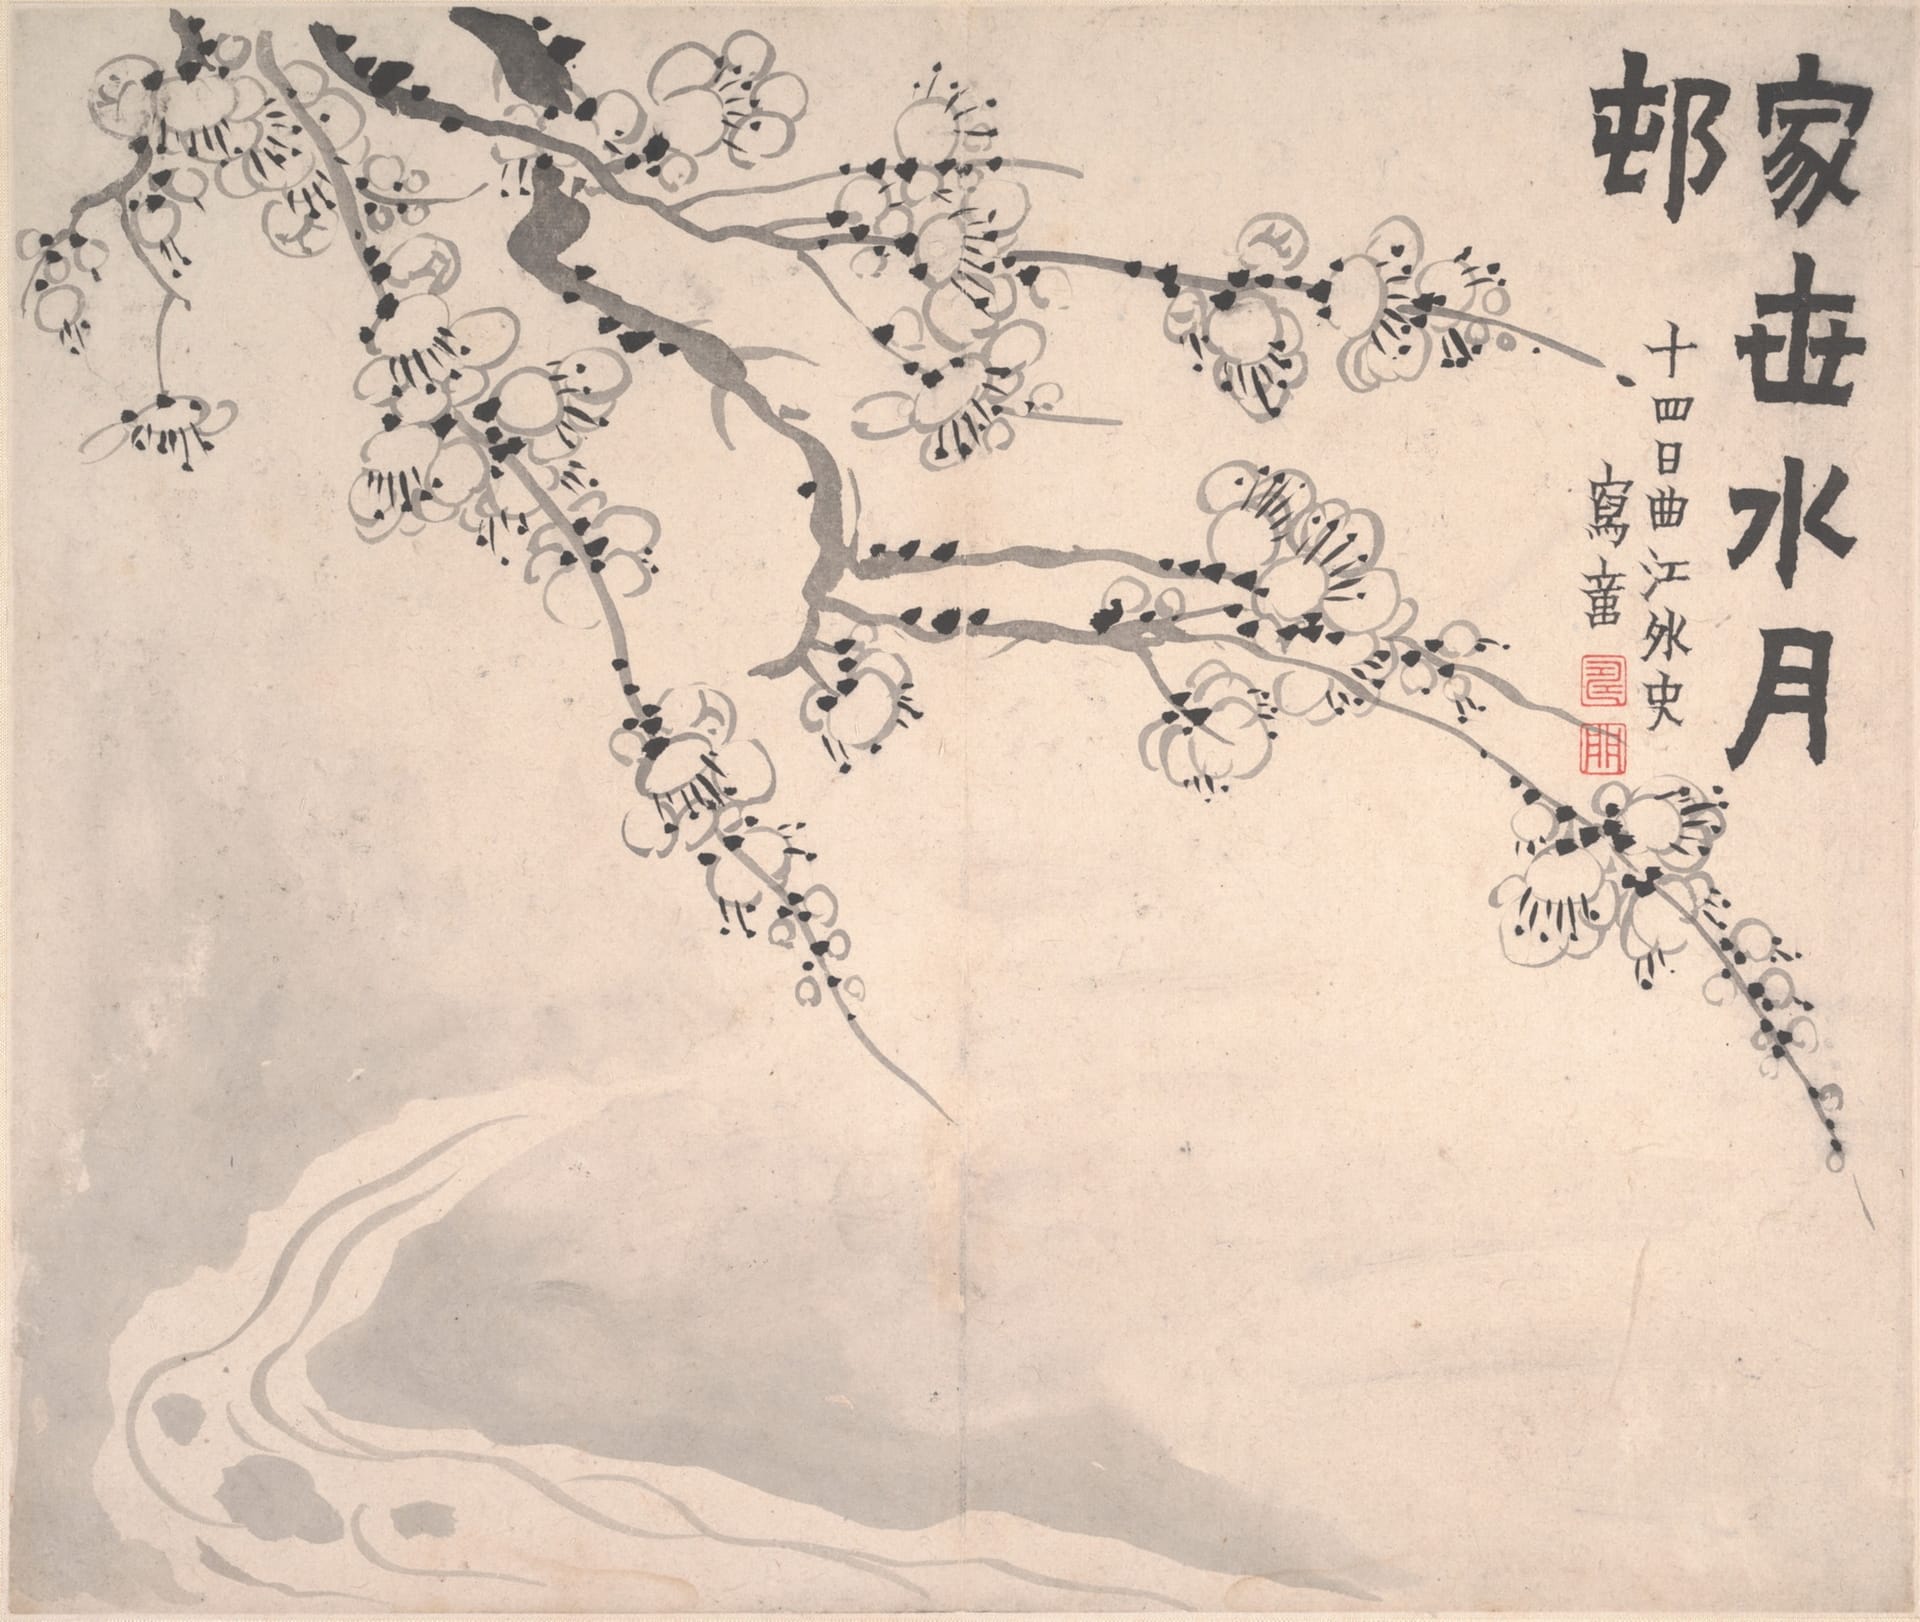 家在水月
邨
十四日曲江外史
寫